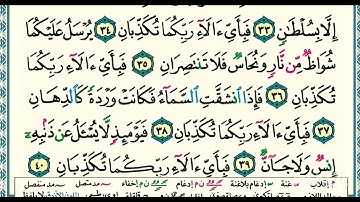 إِلَّا بِسُلْطَٰنٍ ٣٣ فَبِأَيِّ ءَالَآءِ رَبِّكُمَا تُكَذِّبَانِ ٣٤ يُرْسَلُ عَلَيْكُمَا
شُوَاظٌ مِّن نَّارٍ وَنُحَاسٌ فَلَا تَنتَصِرَانِ ٣٥ فَبِأَيِّ ءَالَآءِ رَبِّكُمَا
تُكَذِّبَانِ ٣٦ فَإِذَا ٱنشَقَّتِ ٱلسَّمَآءُ فَكَانَتْ وَرْدَةً كَٱلدِّهَانِ
٣٧ فَبِأَيِّ ءَالَآءِ رَبِّكُمَا تُكَذِّبَانِ ٣٨ فَيَوْمَئِذٍ لَّا يُسْـَٔلُ عَن ذَنۢبِهِۦٓ
إِنسٌ وَلَا جَآنٌّ ٣٩ فَبِأَيِّ ءَالَآءِ رَبِّكُمَا تُكَذِّبَانِ ٤٠
م إقلاب غنة إدغام بلاغنة ن م إدغام ن م إخفاء مد متصل مد منفصل